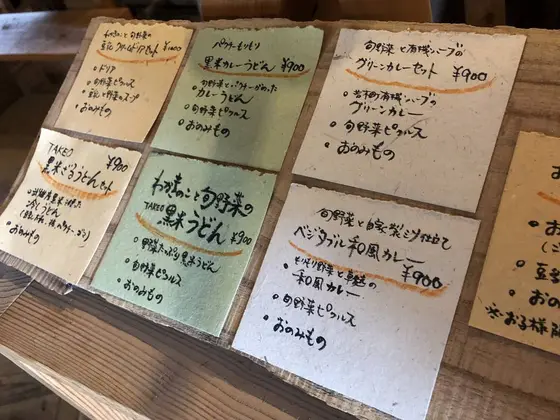 旬野菜の
セット ¥1000
・ドリア
・旬野菜ピクルス
・豆乳と野菜のスープ
・おのみもの
パワーもりもり
黒米カレーうどん ¥900
・旬野菜と
カレーうどん
・旬野菜ピクルス
・おのみもの
旬野菜と有機ハーブの
グリーンカレーセット ¥900
・有機ハーブの
グリーンカレー
・旬野菜ピクルス
・おのみもの
TAKEO ¥900
黒米ざるうどんセット
冷しうどん
・おのみもの
わかきのこと旬野菜の
TAKEO 黒米うどん ¥900
・野菜たっぷり黒米うどん
・旬野菜ピクルス
・おのみもの
旬野菜と自家製ミソ仕立て
ベジタブル和風カレー ¥900
和風カレー
・旬野菜ピクルス
・おのみもの